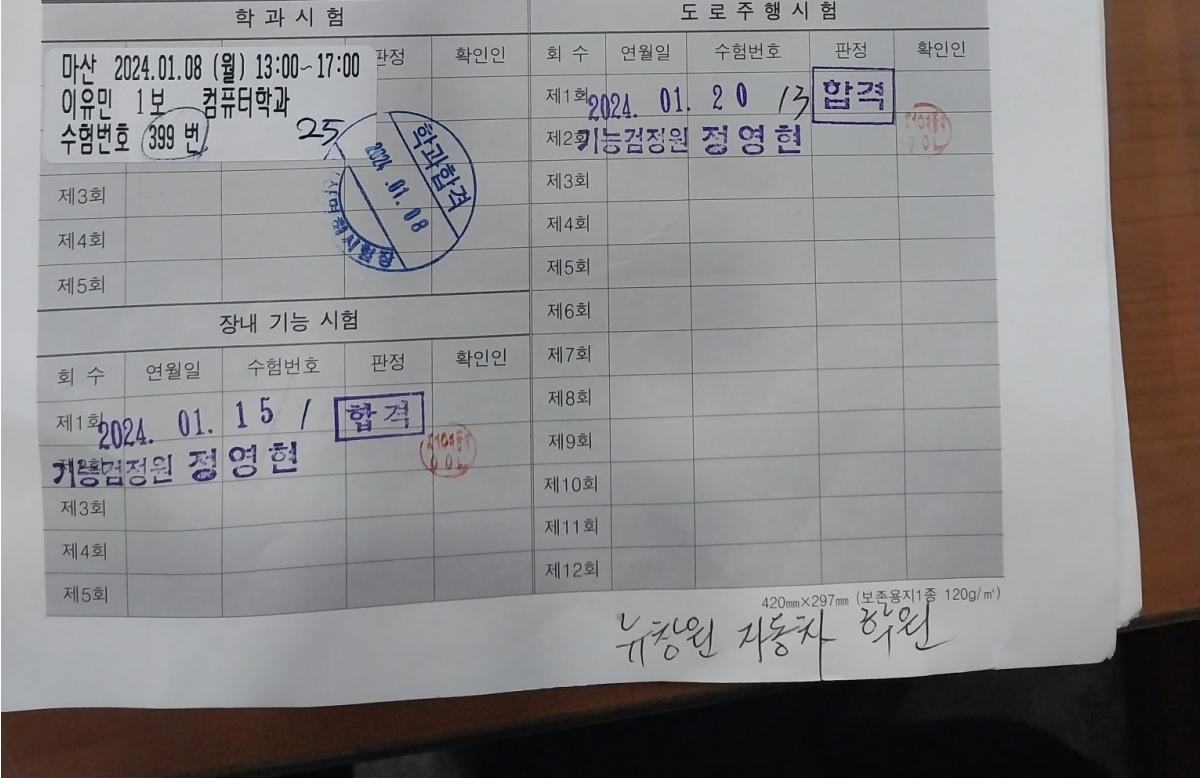 학과시험
판정 확인인
마산 2024.01.08 (월) 13:00~17:00
이유민 1보 컴퓨터학과
수험번호 399 번
25
학과합격
2024.01.08
시험장
제3회
제4회
제5회
장내 기능 시험
회 수 연월일 수험번호 판정 확인인
제1회 2024. 01. 15 / 합격
기능검정원 정영현
제3회
제4회
제5회
도로주행시험
회 수 연월일 수험번호 판정 확인인
제1회 2024. 01. 20 13 합격
제2회 기능검정원 정영현
제3회
제4회
제5회
제6회
제7회
제8회
제9회
제10회
제11회
제12회
420㎜×297㎜ (보존용지1종 120g/㎡)
뉴창원 자동차 학원